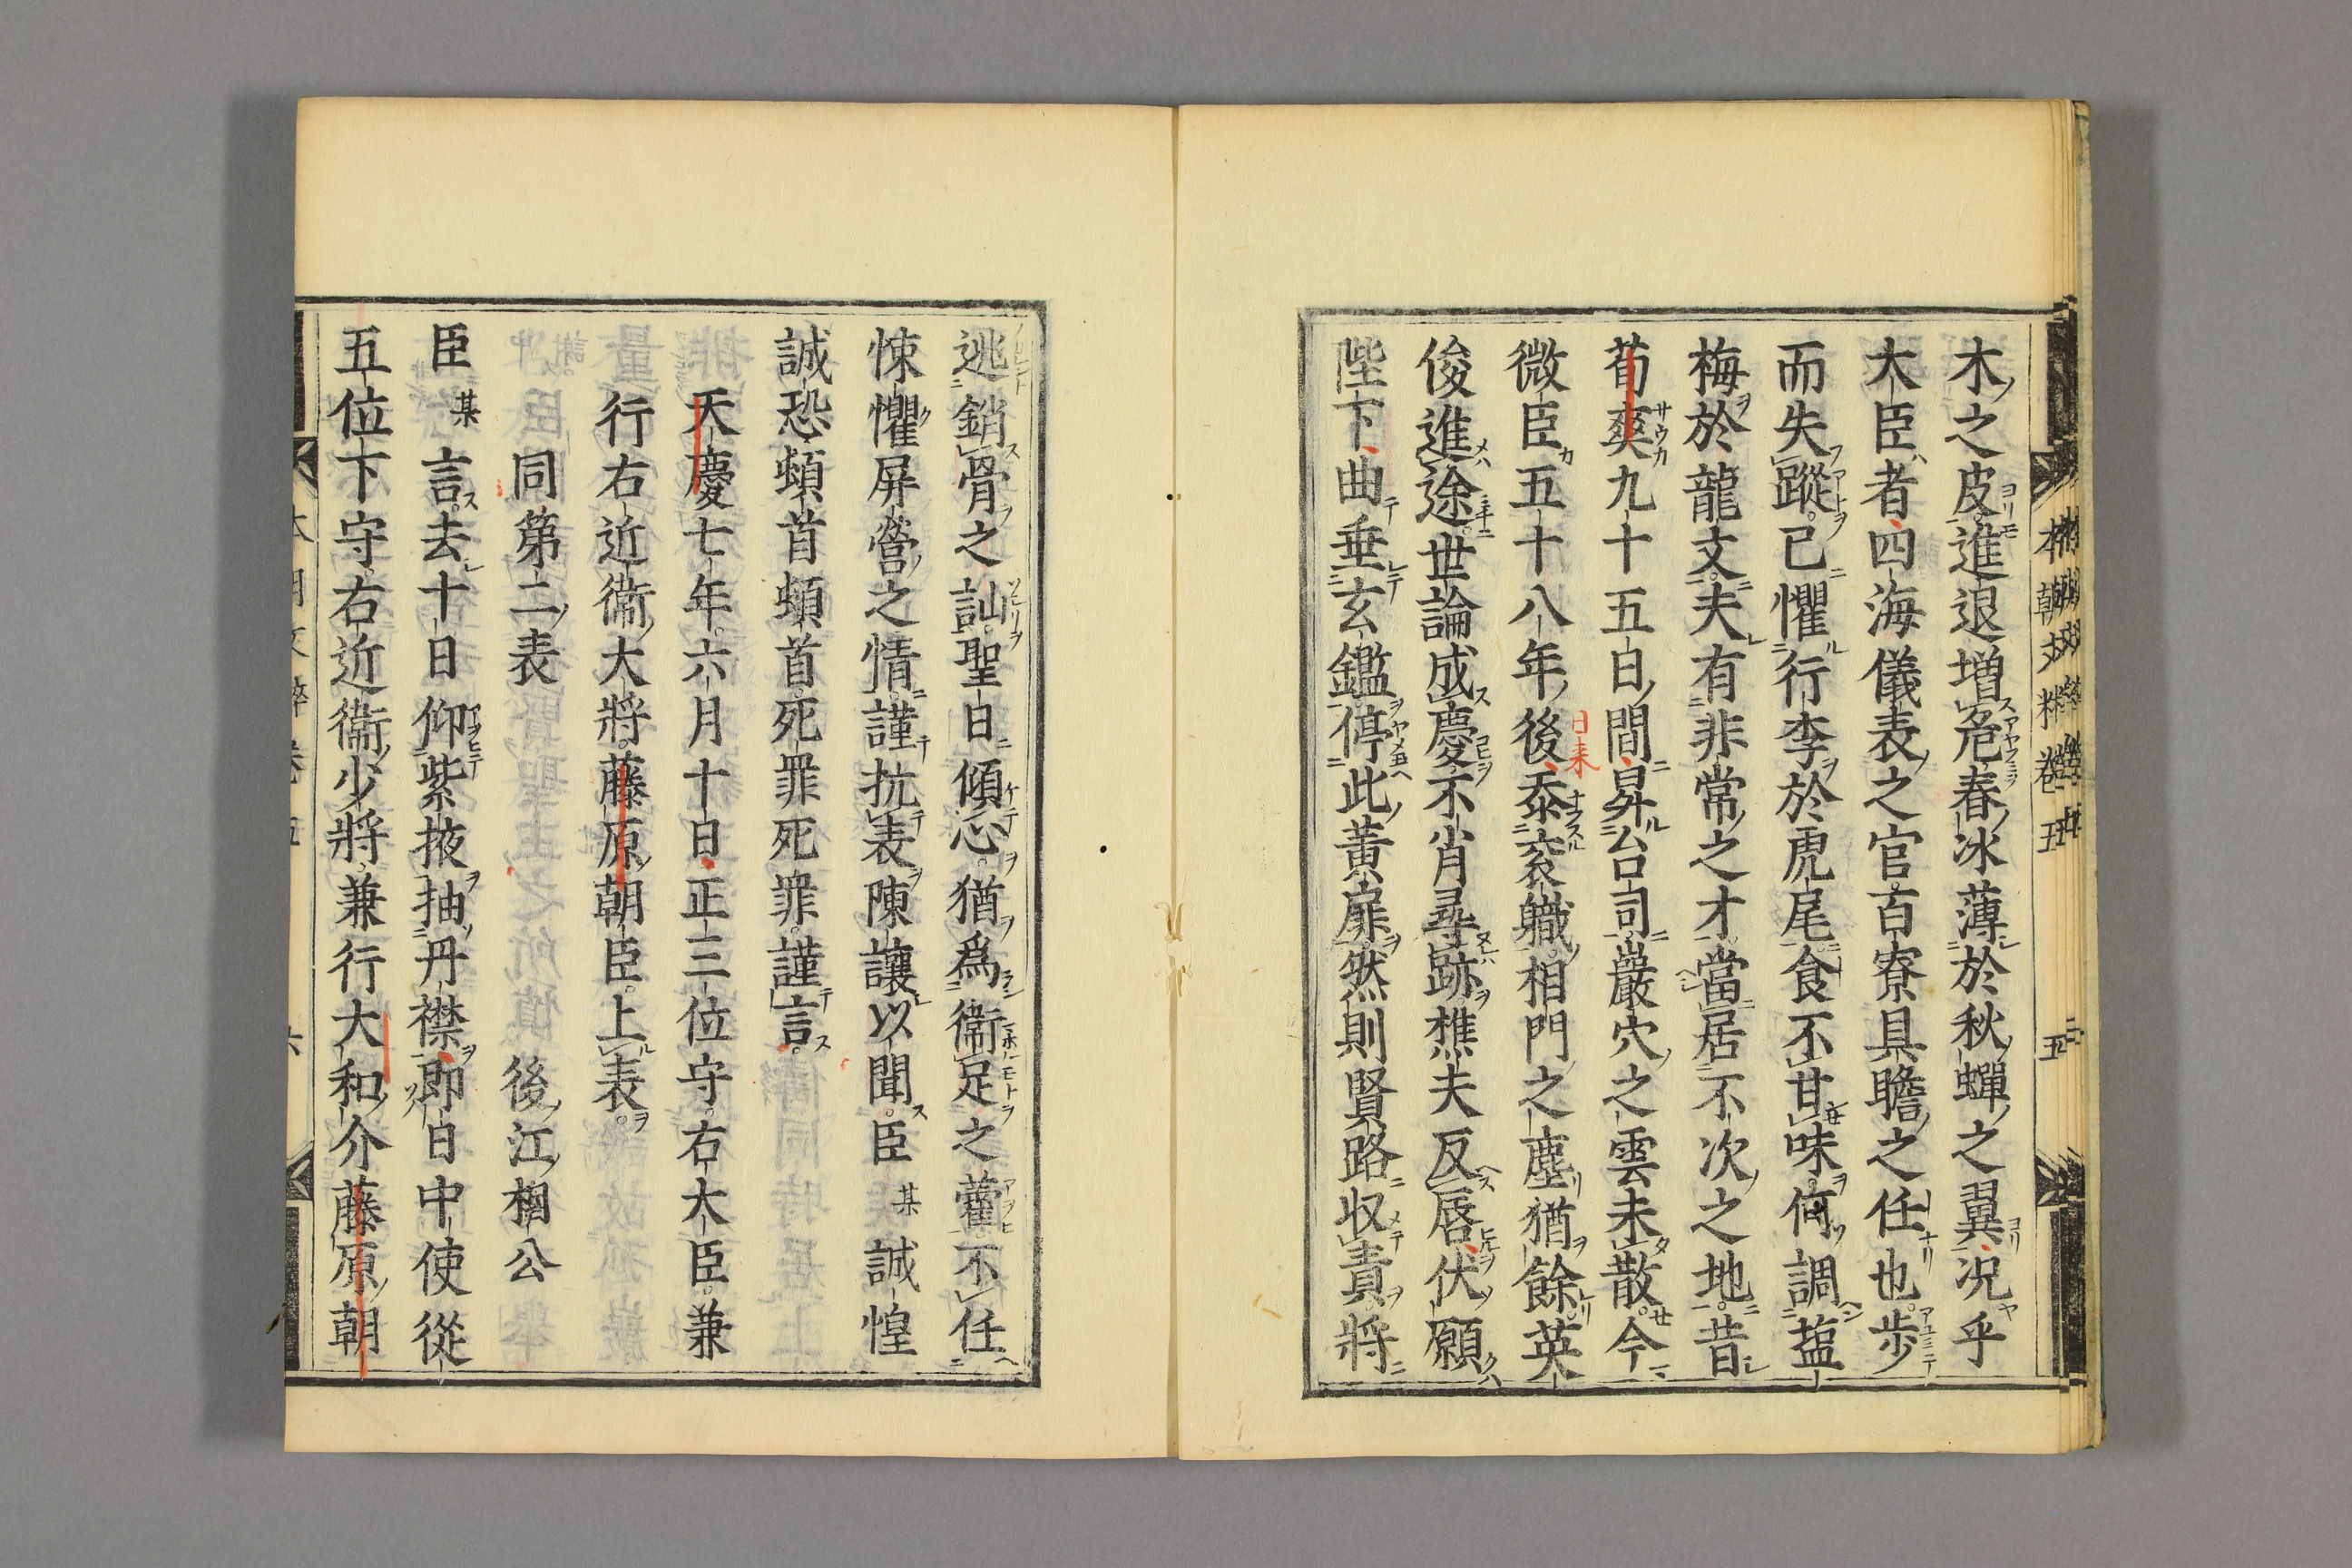 木之皮進退増危春冰薄於秋蟬之翼况乎
大臣者四海儀表之官百寮具瞻之任也歩
而失蹤已懼行李於虎尾食不甘味何調塩
梅於龍文夫有非常之才當居不次之地昔
荀爽九十五日間昇台司巖穴之雲未散今
微臣五十八年後忝袞職相門之塵猶餘英
俊進途世論成慶不肖尋跡樵夫反唇伏願
陛下曲垂玄鑑停此黄扉然則賢路収責將
逃銷骨之訕聖日傾心猶爲衞足之藿不任
悚懼屏營之情謹抗表陳讓以聞臣某誠惶
誠恐頓首頓首死罪死罪謹言
天慶七年六月十日正三位守右大臣兼
行右近衞大將藤原朝臣上表
同第二表 後江相公
臣某言去十日仰紫掖抽丹襟即日中使從
五位下守右近衞少將兼行大和介藤原朝